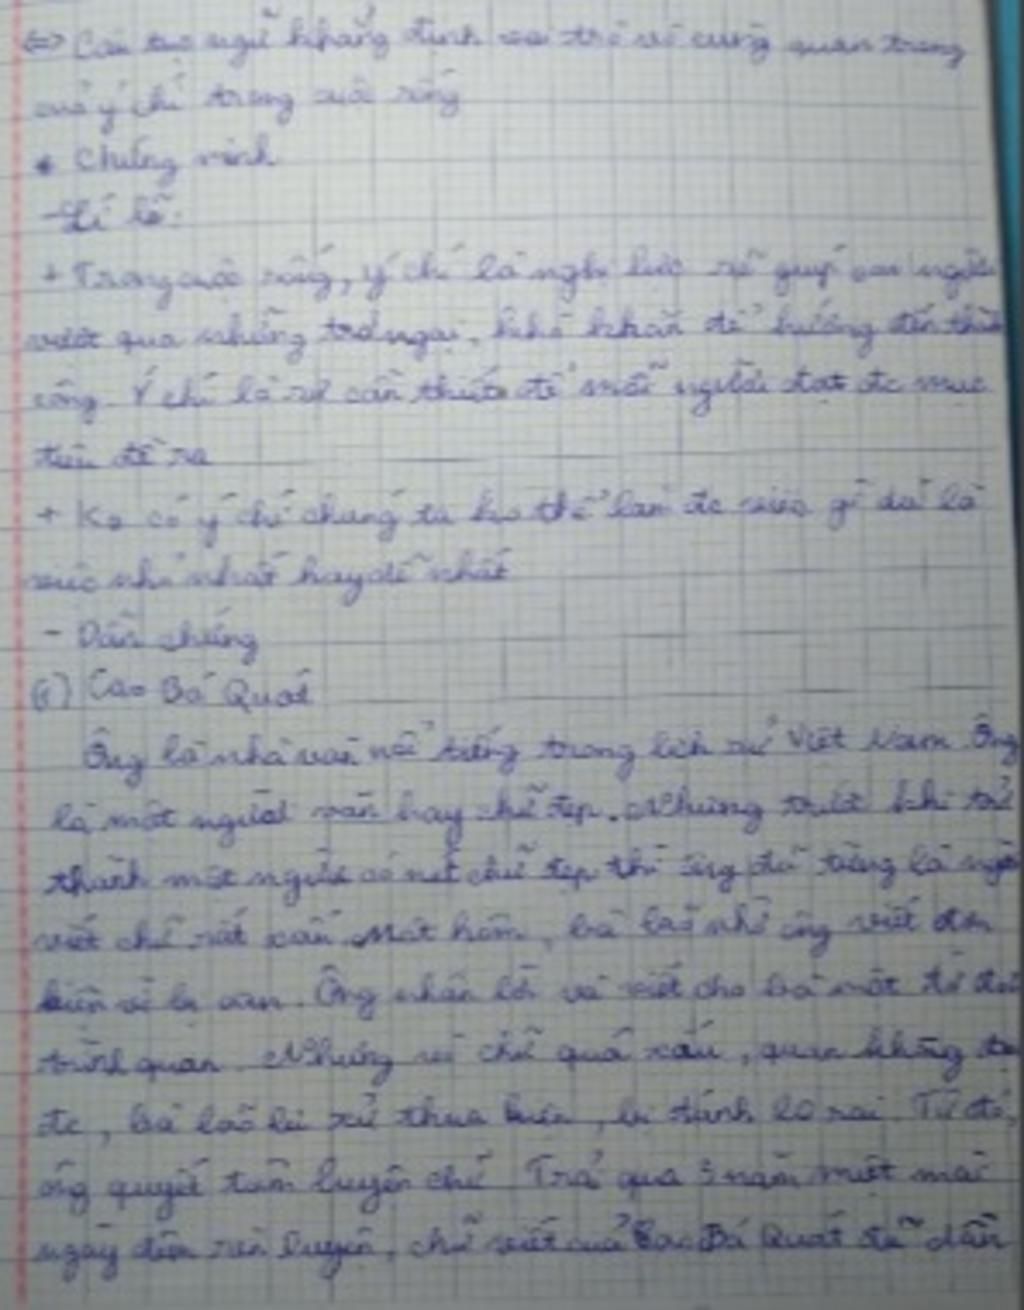 => Câu tục ngữ khẳng định vai trò vô cùng quan trọng
của ý chí trong cuộc sống
* Chứng minh
- Lí lẽ:
+ Trong cuộc sống, ý chí là nghị lực sẽ giúp con người
vượt qua những trở ngại, khó khăn để hướng đến thành
công. Ý chí là sự cần thiết để mỗi người đạt đc mục
tiêu đề ra
+ Ko có ý chí chúng ta ko thể làm đc việc gì dù là
việc nhỏ nhất hay dễ nhất
- Dẫn chứng
Cao Bá Quát
Ông là nhà văn nổi tiếng trong lịch sử Việt Nam. Ông
là một người văn hay chữ đẹp. Nhưng trước khi trở
thành một người có nét chữ đẹp thì ông đã từng là người
viết chữ rất xấu. Một hôm, bà lão nhờ ông viết đơn
kiện vì bị oan. Ông nhận lời và viết cho bà một tờ đơn
trình quan. Nhưng vì chữ quá xấu, quan không đọc
đc, bà lão bị xử thua kiện, bị đánh 10 roi. Từ đó,
ông quyết tâm luyện chữ. Trải qua 3 năm miệt mài
ngày đêm rèn luyện, chữ viết của Cao Bá Quát đã dần